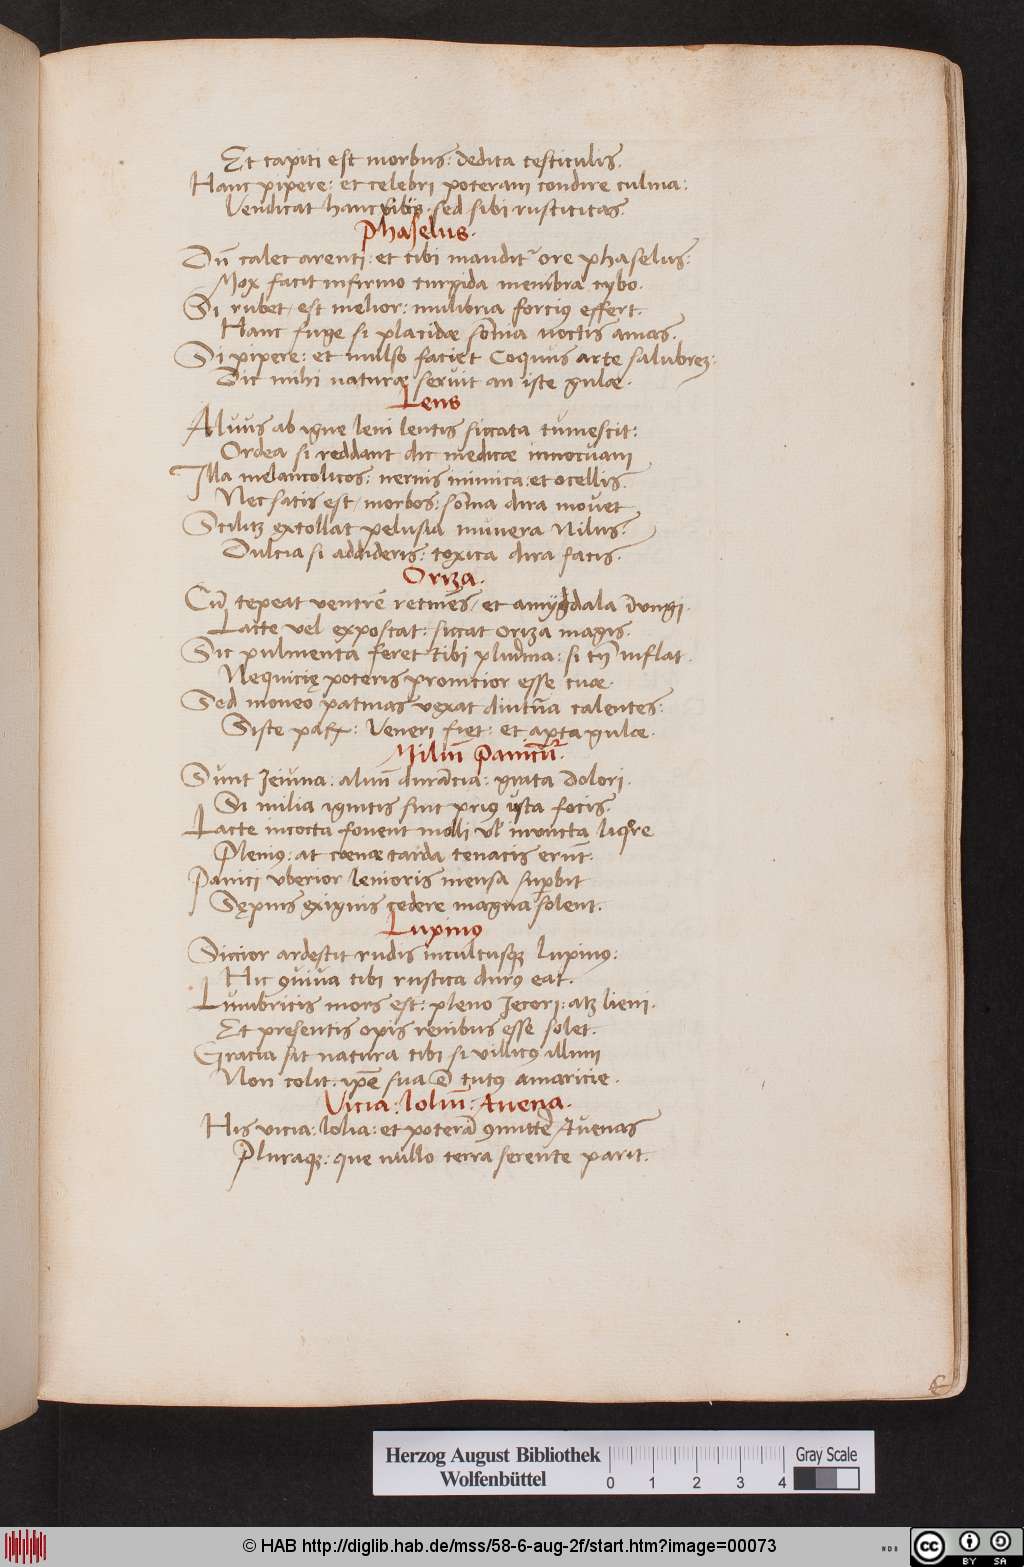 Et capiti est morbus: dedita testiculis.
Hanc pipere: et celebri poteram condire culina:
Vendicat hanc sibi: sed sibi rusticitas.
Phaselus.
Dū calet arenti: et tibi mandit᷑ ore phaselus:
Mox facit infirmo turgida membra cybo.
Si rubet, est melior: mulibria forciꝯ effert.
Hanc fuge si placidae somnia noctis amas.
Si pipere: et mulso faciet Coquus arte salubrez:
Dic mihi naturae servit an iste gulae.
Lens
Alvus ab igne leni lentis siccata tumescit:
Ordea si reddant dic medicae innocuam
Illa melancolicos: nervis inimica: et ocellis:
Nec satis est, morbos: somnia dira movet
Scilitz extollat pelusia munera Nilus:
Dulcia si addideris: toxica dira facis.
Oriza.
Cū tepeat ventrē retines, et amygdala iungi.
Lacte vel exposcat: siccat oriza magis.
Sic pulmenta feret tibi plurima: si tn̄ inflat.
Nequicię poteris promtior esse tuae.
Sed moneo patrias vexat diutina calentes:
Siste Veneri fiet: et apta gulae.
Miliū Panicū.
Sunt Jeiuna: aluū durācia: grata Dolori.
Si milia ignitis sint priꝯ usta focis.
Lacte incocta fovent molli vl' inuncta liqr̄e
Pleniꝯ: at coenae tarda tenacis erūt.
Panici uberior lenioris mensa supbit
Sępius exiguis cedere magna solent.
Lupinꝯ
Siccior ardescit rudis incultusqꝫ lupinꝯ:
Hic ꝯviva tibi rustica durꝯ eat.
Lumbricis mors est: pleno Jecori: atꝫ lieni.
Et presentis opis renibus esse solet.
Gracia sit natura tibi si villicꝯ illum
Non colit: ip̄e sua ē tutꝯ amaricie.
Vicia: loliū: Avena.
His vicia: lolia: et poterā ꝯmittē Avenas
Pluraqꝫ: que nullo terra serente parit.
Herzog August Bibliothek
Wolfenbüttel
0 1 2 3 4
Gray Scale
© HAB http://diglib.hab.de/mss/58-6-aug-2f/start.htm?image=00073
cc BY SA